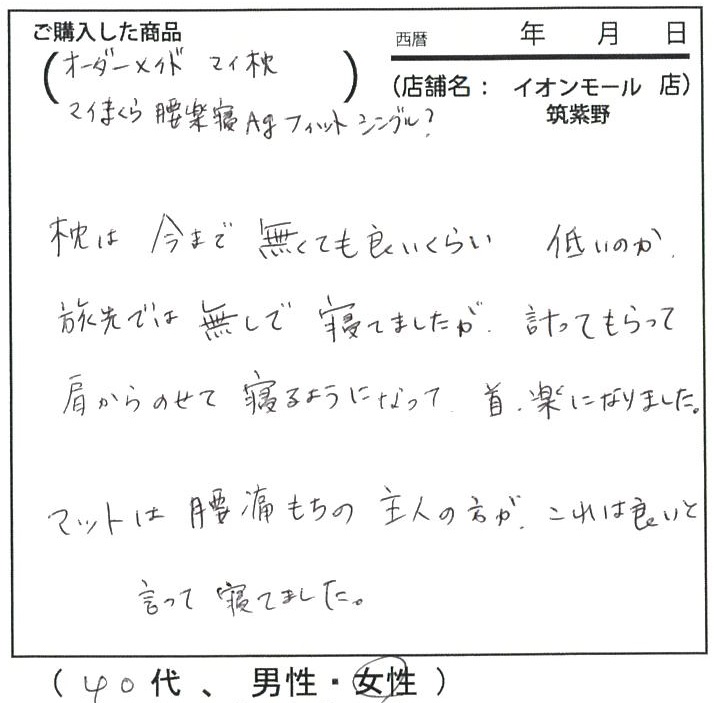 ご購入した商品
西暦 年 月 日
(オーダーメイド マイ枕
マイまくら 腰楽寝Agフィットシングル?)
(店舗名: イオンモール 店)
筑紫野
枕は 今まで 無くても良いくらい 低いのが、
旅先では 無しで 寝てましたが、計ってもらって
肩からのせて 寝るようになって、首、楽になりました。
マットは 腰痛もちの 主人の方が、これは良いと
言って 寝てました。
(40代、男性・女性)